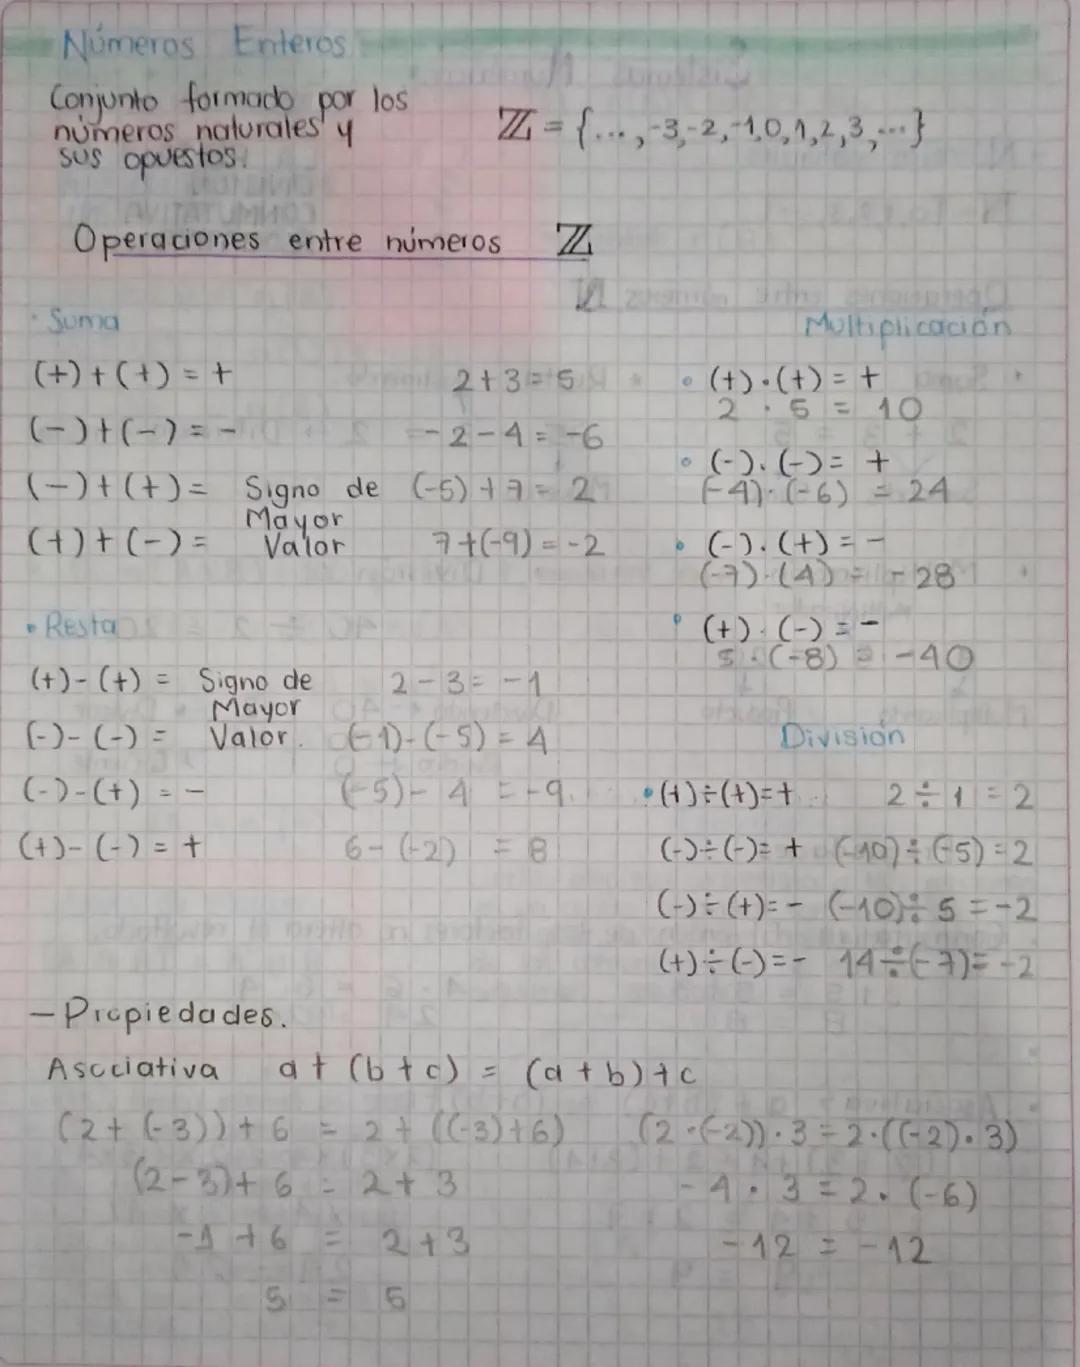 Números Enteros
Conjunto formado por los
números naturales y
sus opuestos.
ℤ = {..., -3, -2, -1, 0, 1, 2, 3, ...}
Operaciones entre números ℤ
· Suma
(+) + (+) = + 2 + 3 = 5
(-) + (-) = - - 2 - 4 = -6
(-) + (+) = Signo de (-5) + 7 = 2
Mayor
(+) + (-) = Valor 7 + (-9) = -2
• Resta
(+) - (+) = Signo de 2 - 3 = -1
Mayor
(-) - (-) = Valor. (-1) - (-5) = 4
(-) - (+) = - (-5) - 4 = -9.
(+) - (-) = + 6 - (-2) = 8
Multiplicación
• (+) · (+) = +
2 · 5 = 10
• (-) · (-) = +
(-4) · (-6) = 24
• (-) · (+) = -
(-7) · (4) = - 28
• (+) · (-) = -
5 · (-8) = -40
División
• (+) ÷ (+) = + 2 ÷ 1 = 2
(-) ÷ (-) = + (-10) ÷ (-5) = 2
(-) ÷ (+) = - (-10) ÷ 5 = -2
(+) ÷ (-) = - 14 ÷ (-7) = -2
- Propiedades.
Asociativa a + (b + c) = (a + b) + c
(2 + (-3)) + 6 = 2 + ((-3) + 6)
(2 - 3) + 6 = 2 + 3
-1 + 6 = 2 + 3
5 = 5
(2 · (-2)) · 3 = 2 · ((-2) · 3)
- 4 · 3 = 2 · (-6)
- 12 = - 12